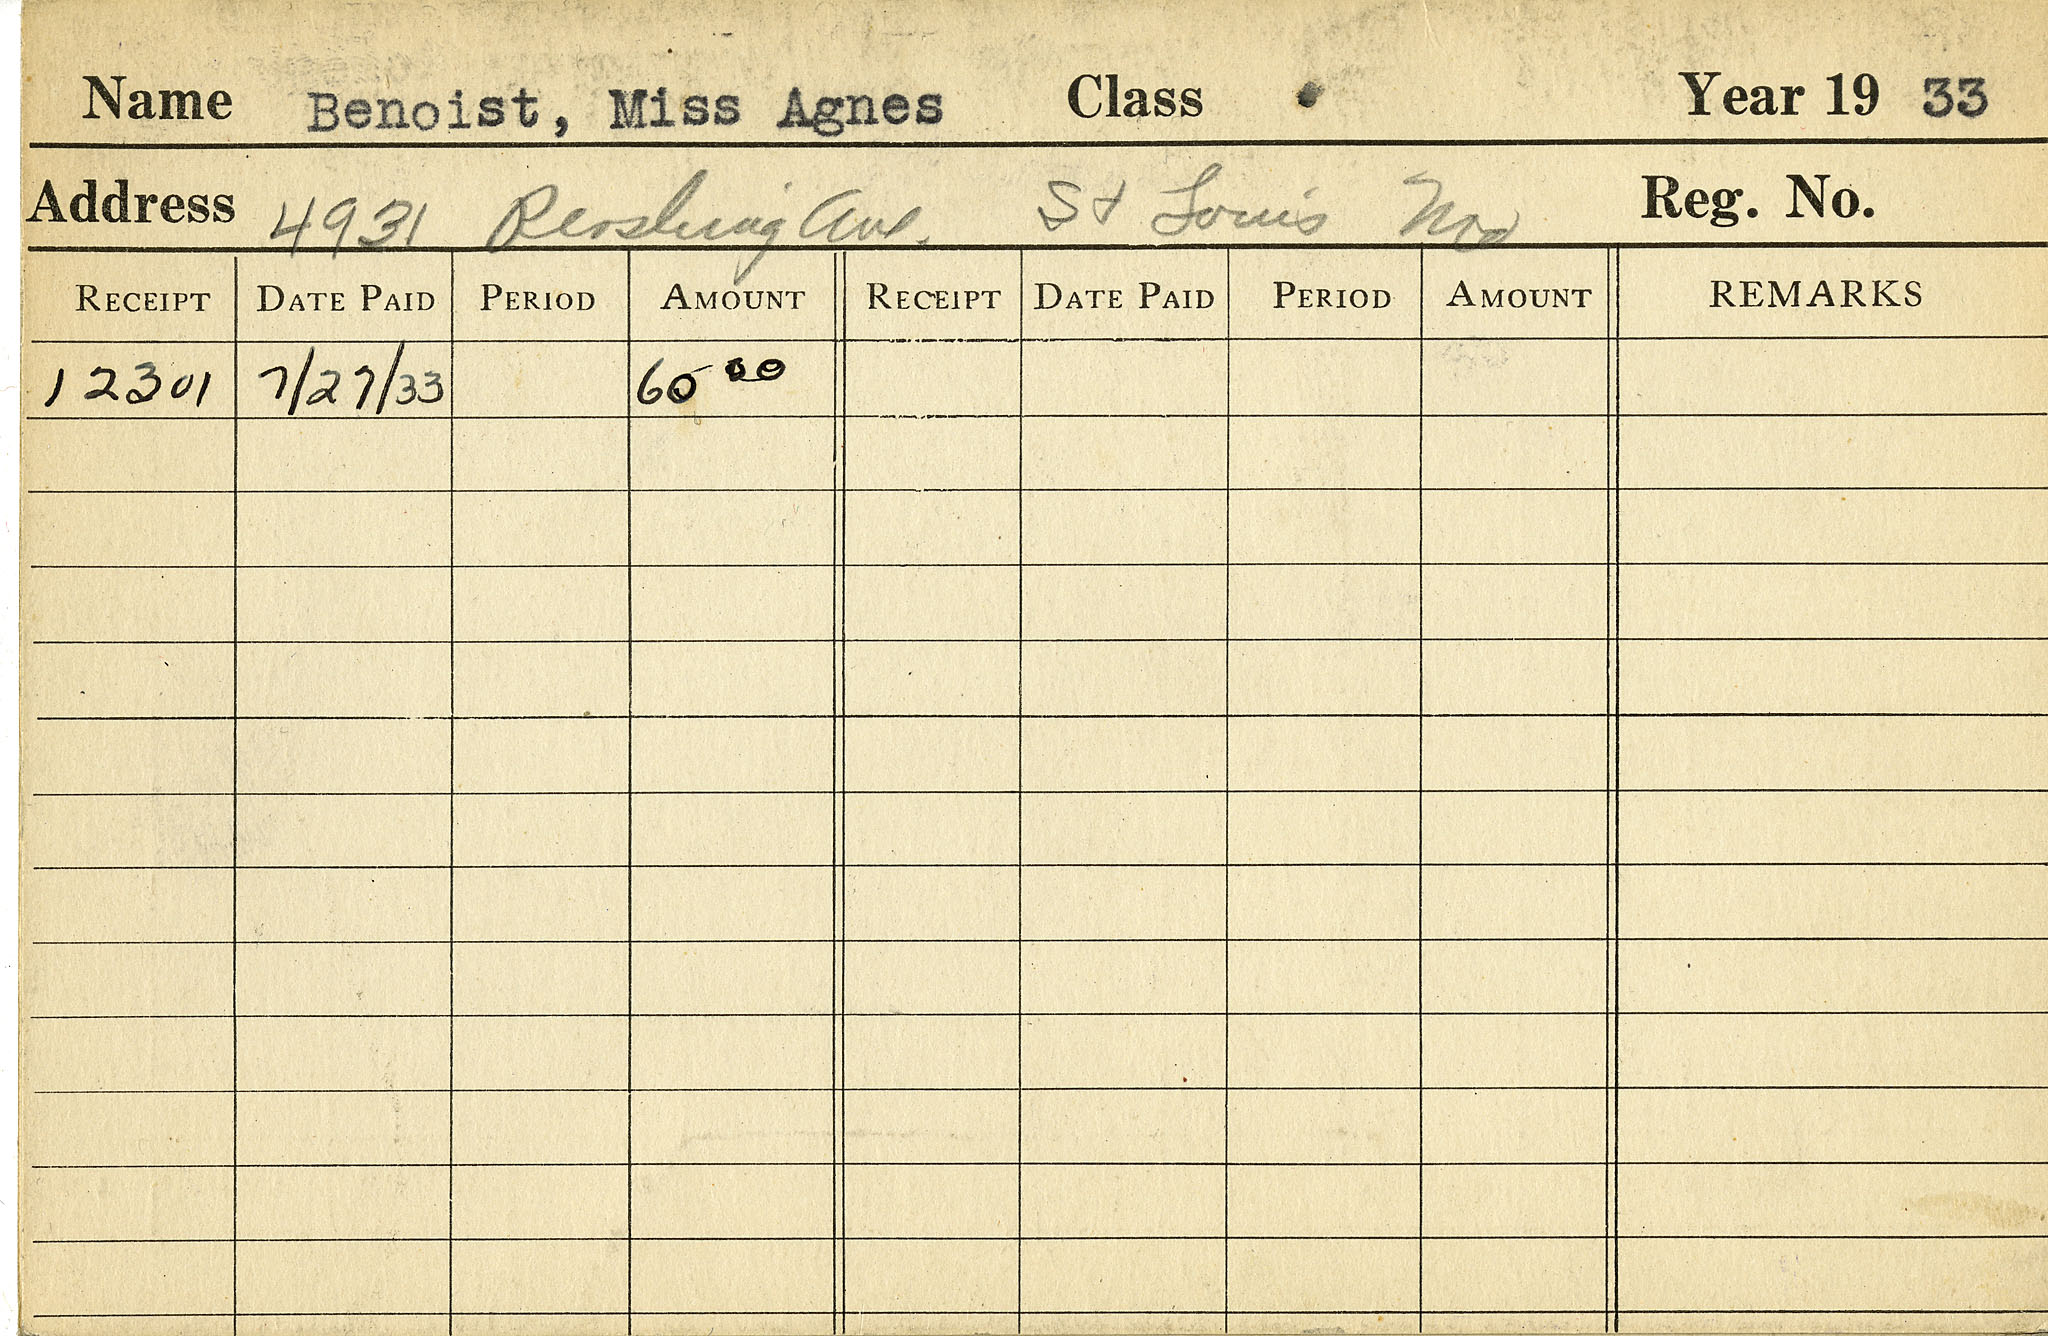 Name Benoist, Miss Agnes Class Year 19 33
Address 4931 Pershing Ave. St Louis Mo Reg. No.
RECEIPT DATE PAID PERIOD AMOUNT RECEIPT DATE PAID PERIOD AMOUNT REMARKS
12301 7/27/33 60 00